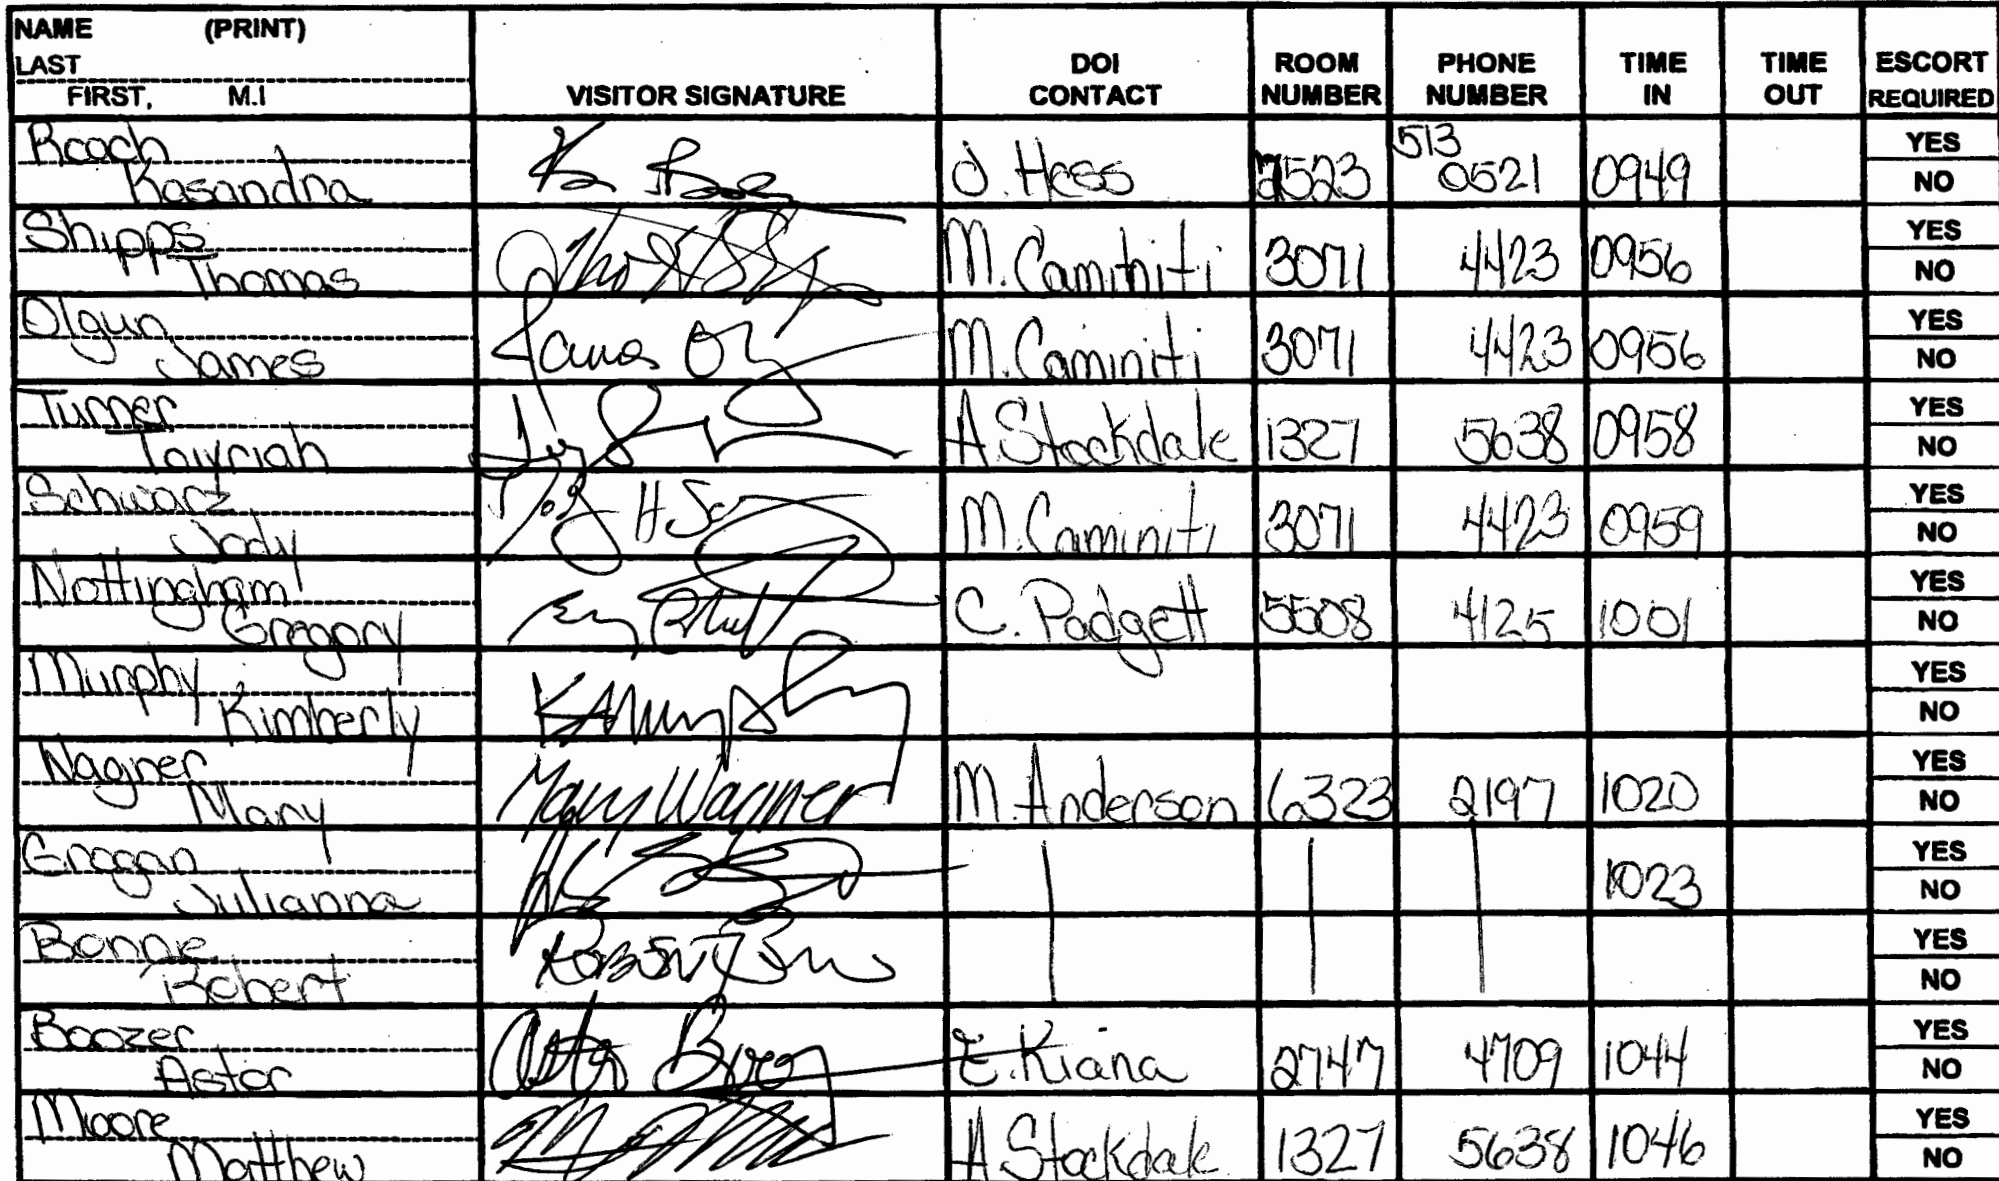 NAME (PRINT)
LAST
FIRST, M.I
VISITOR SIGNATURE
DOI CONTACT
ROOM NUMBER
PHONE NUMBER
TIME IN
TIME OUT
ESCORT REQUIRED
Roach
Kasandra J. Hess 7523 513 0521 0949 YES NO
Shipps
Thomas M. Caminiti 3071 4423 0956 YES NO
Olgun
James James M. Caminiti 3071 4423 0956 YES NO
Turner
A Stockdale 1327 5638 0958 YES NO
Schwarz
Jody M. Caminiti 3071 4423 0959 YES NO
Nottingham
Gregory C. Padgett 5508 4125 1001 YES NO
Murphy
Kimberly K Murphy YES NO
Wagner
Mary Mary Wagner M. Anderson 6323 2197 1020 YES NO
Grogan
Julianna 1023 YES NO
Bonnie
Robert Robert YES NO
Boozer
Astor E. Kiana 2747 4709 1044 YES NO
Moore
Matthew A Stockdale 1327 5638 1046 YES NO